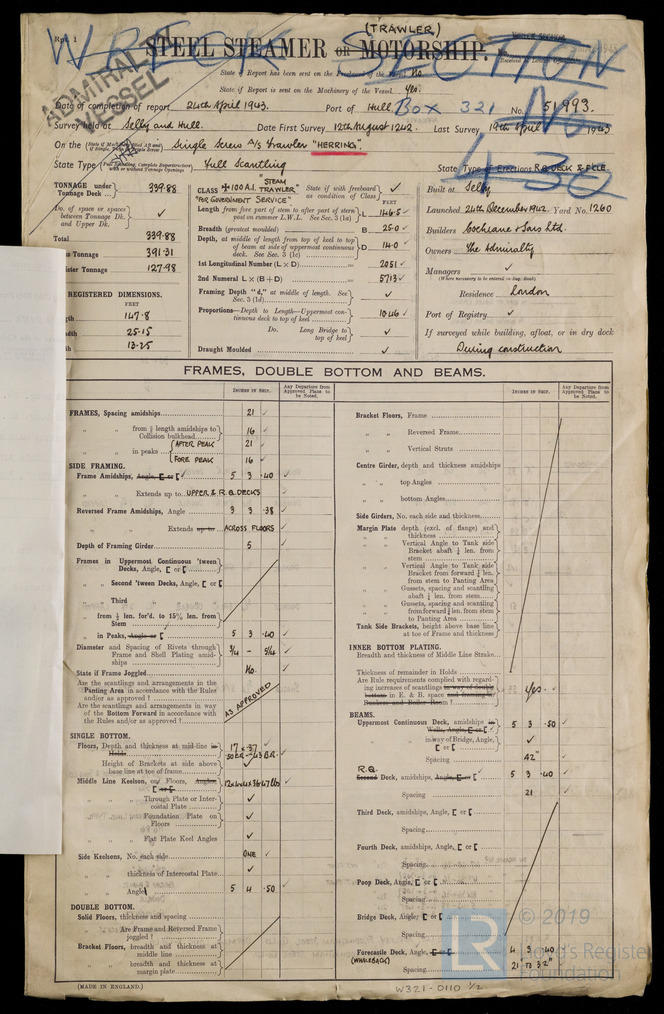 Rpt. 1
(TRAWLER)
STEEL STEAMER OR MOTORSHIP.
WRECK SECTION
ADMIRALTY VESSEL
State if Report has been sent on the Freeboard of the Vessel No.
State if Report is sent on the Machinery of the Vessel Yes.
Date of completion of report 24th April 1943. Port of Hull Box 321 No. 51993.
No 430
Survey held at Selby and Hull. Date First Survey 12th August 1942. Last Survey 19th April 1943
On the Single Screw A/s Trawler "HERRING".
State Type Full Scantling State Type of Erections R.Q. DECK & F'CLE
TONNAGE under Tonnage Deck ... 339.88
Do. of space or spaces between Tonnage Dk. and Upper Dk. ✓
Total 339.88
Tonnage 391.31
Tonnage 127.98
REGISTERED DIMENSIONS.
FEET
147.8
25.15
13.25
CLASS +100 A.1. "STEAM TRAWLER" State if with freeboard as condition of Class ✓
"FOR GOVERNMENT SERVICE"
FEET
Length from fore part of stem to after part of stern post on summer L.W.L. See Sec. 3 (1a) L 146.5 ✓
Breadth (greatest moulded) B 25.0 ✓
Depth, at middle of length from top of keel to top of beam at side of uppermost continuous deck. See Sec. 3 (1c) D 14.0 ✓
1st Longitudinal Number (L × D) 2051 ✓
2nd Numeral L × (B + D) 5713 ✓
Framing Depth "d," at middle of length. See Sec. 3 (1d) ✓
Proportions—Depth to Length—Uppermost continuous deck to top of keel 10.46 ✓
Do. Long Bridge to top of keel ✓
Draught Moulded ✓
Built at Selby
Launched 24th December 1942 Yard No. 1260
Builders Cochrane & Sons Ltd.
Owners The Admiralty
Managers ✓
(Where necessary to be entered in Reg. Book)
Residence London
Port of Registry ✓
If surveyed while building, afloat, or in dry dock
During construction
FRAMES, DOUBLE BOTTOM AND BEAMS.
INCHES IN SHIP.
Any Departure from Approved Plans to be Noted.
FRAMES, Spacing amidships 21 ✓
" " from ⅕ length amidships to Collision bulkhead 16 ✓
" " in peaks (AFTER PEAK 21 ✓
(FORE PEAK 16 ✓
SIDE FRAMING.
Frame Amidships, Angle, [ or [ 5 3 .40 ✓
" " Extends up to UPPER & R.Q. DECKS
Reversed Frame Amidships, Angle 3 3 .38 ✓
" " Extends up to ACROSS FLOORS
Depth of Framing Girder 5
Frames in Uppermost Continuous 'tween Decks, Angle, [ or [
" " Second 'tween Decks, Angle, [ or [
" " Third " "
" " from ⅕ len. for'd. to 15% len. from Stem
" " in Peaks, Angle or [ 5 3 .40 ✓
Diameter and Spacing of Rivets through Frame and Shell Plating amidships 3/4 - 5 1/4 ✓
State if Frame Joggled No. ✓
Are the scantlings and arrangements in the Panting Area in accordance with the Rules and/or as approved?
Are the scantlings and arrangements in way of the Bottom Forward in accordance with the Rules and/or as approved?
AS APPROVED
SINGLE BOTTOM.
Floors, Depth and thickness at mid-line in Holds 17 × .37
.50 E.R. - .43 B.R. ✓
Height of Brackets at side above base line at toe of frame ✓
Middle Line Keelson, on Floors, Angles, [ or [
" " Through Plate or Intercostal Plate ✓
" " Foundation Plate on Floors ✓
" " Flat Plate Keel Angles ✓
Side Keelsons, No. each side ONE ✓
" " thickness of Intercostal Plate ✓
" " Angle 5 4 .50 ✓
DOUBLE BOTTOM.
Solid Floors, thickness and spacing
" " Are Frame and Reversed Frame joggled?
Bracket Floors, breadth and thickness at middle line
" " breadth and thickness at margin plate
INCHES IN SHIP.
Any Departure from Approved Plans to be Noted.
Bracket Floors, Frame
" " Reversed Frame
" " Vertical Struts
Centre Girder, depth and thickness amidships
" " top Angles
" " bottom Angles
Side Girders, No. each side and thickness
Margin Plate depth (excl. of flange) and thickness
" " Vertical Angle to Tank side Bracket abaft ¼ len. from stem
" " Vertical Angle to Tank side Bracket from forward ¼ len. from stem to Panting Area
" " Gussets, spacing and scantling abaft ¼ len. from stem
" " Gussets, spacing and scantling from forward ¼ len. from stem to Panting Area
Tank Side Brackets, height above base line at toe of Frame and thickness
INNER BOTTOM PLATING.
Breadth and thickness of Middle Line Strake
Thickness of remainder in Holds
Are Rule requirements complied with regarding increases of scantlings in way of double bottom in E. & B. space and framing in Bunkers and Boiler Room? Yes. ✓
BEAMS.
Uppermost Continuous Deck, amidships in Wells, Angle, [ or [ 5 3 .50 ✓
" " in way of Bridge, Angle, [ or [ ✓
Spacing 42" ✓
R.Q.
Second Deck, amidships, Angle, [ or [ 5 3 .40 ✓
Spacing 21 ✓
Third Deck, amidships, Angle, [ or [
Spacing
Fourth Deck, amidships, Angle, [ or [
Spacing
Poop Deck, Angle, [ or [
Spacing
Bridge Deck, Angle, [ or [
Spacing
Forecastle Deck, Angle, [ or [ 4 3 .40 ✓
(WHALEBACK)
Spacing 21" TO 32" ✓
(MADE IN ENGLAND.)
W321-0110 1/2
LR © 2019
Lloyd's Register
Foundation